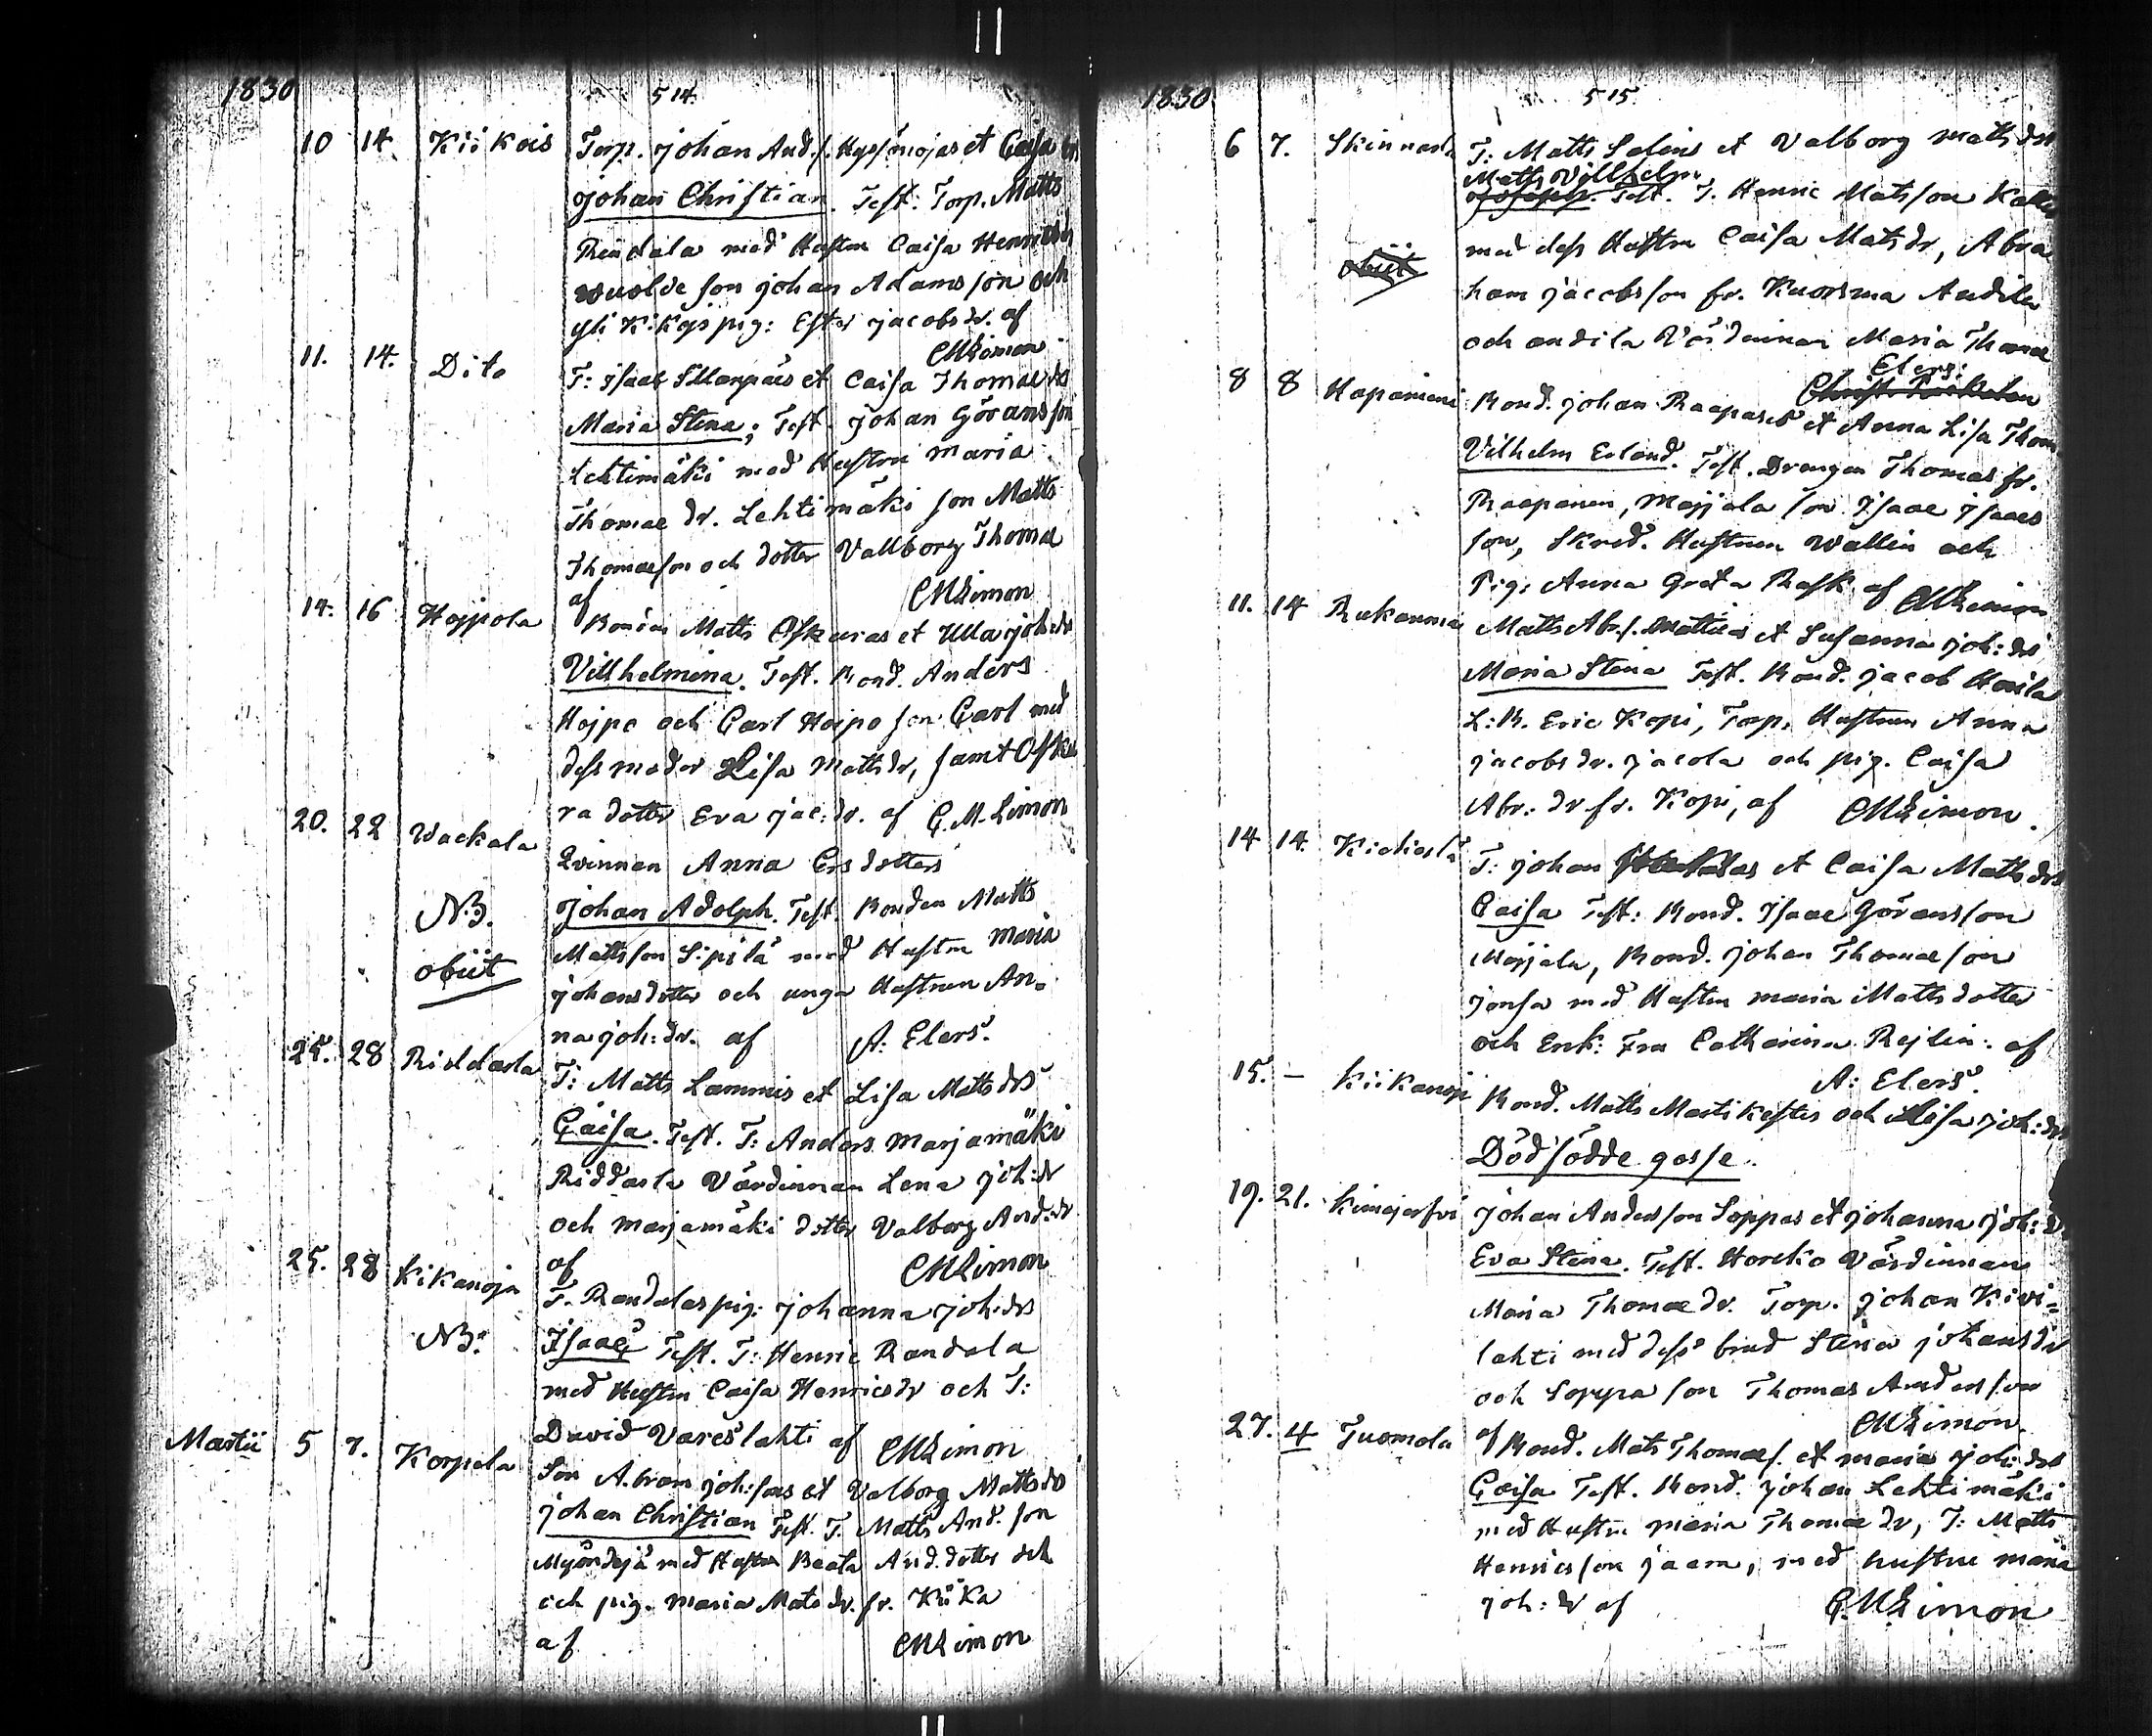 1830
514.
10 14 Kiikois Torp. johan And.s. Hyssmojas et Caisa
johan Christian. Test: Torp. Matts
Rendala med Hustru Caisa
son johan Adamsson och
pig: Ester jacobsdr. af
CMLimon
11. 14. Dito T: Isaac et Caisa Thomae drs
Maria Stina; Test. johan Göransson
Lehtimäki med Hustru Maria
Thomae dr. Lehtimäki son Matts
Thomaeson och dotter Vallborg Thomae
af CMLimon
14. 16 Hojpola Bonden Matts Oskuras et Ulla joh:drs
Villhelmina. Test. Bond. Anders
Hojpo och Carl Hojpo son Carl med
dess moder Lisa Mattsdr, samt Osku
ra dotter Eva jac:dr. af C. M. Limon
20. 22 Wackala Qvinnan Anna Ersdotters
NB. johan Adolph. Test. Bonden Matts
obiit Mattsson Sipilä med Hustru Maria
johansdotter och unga Hustrun An-
na joh:dr. af A: Elers.
25. 28 Riddasla T: Matts Lammis et Lisa Matts drs
Caisa. Test. T: Anders Marjamäki
Riddasla Värdinnan Lena joh:dr
och Marjamäki dotter Valborg And:dr
af CMLimon
25. 28 Kikanoja T. Randalas pig: johanna joh:drs
NB: Isaac Test. T: Henric Randala
med Hustru Caisa Henricsdr och T:
David Vareslahti af CMLimon
Martii 5 7. Korpela Son Abram joh:sons et Valborg Matts drs
johan Christian Test. T. Matts And. son
Myöndejä med Hustru Beata And. dotter och
och pig. Maria Mats dr. fr. Kiika
af CMLimon
1830
515
6 7. Skinnarla T: Matts Salins et Valborg Mathsdrs
Matts Villhelm
Test. T. Henric Matsson
obiit med dess Hustru Caisa Matsdr, Abra
ham jacobsson fr. Kuorsma Andila
och andila Värdinnan Maria Thomae
Elers:
8 8 Haponiemi Bond. johan Raapases et Anna Lisa Thom
Vilhelm Erland. Test. Drengen Thomas fr.
Raapanen, Majjala son Isaac Isaacs
son, Skred. Hustrun Wallin och
Pig: Anna Greta Rask af CMLimon
11. 14 Matts Abr.s. Mattilas et Susanna joh: drs
Maria Stina Test. Bond. jacob
L:B. Eric Kopi, Torp. Hustrun Anna
jacobsdr. jacola och pig. Caisa
Abr: dr fr. Kopi, af CMLimon.
14 14. T: johan et Caisa Matts drs
Caisa Test: Bond. Isaac Göransson
Majjala, Bond. johan Thomaeson
jonsa med Hustru Maria Mattsdotter
och Enk: Fru Catharina Rejlin: af
A: Elers.
15. – Kiikanoja Bond. Matts Martikestes och Lisa joh:drs
Dödfödde gosse.
19. 21. Kimajerfvi johan Andersson Soppas et johanna joh:d
Eva Stina. Test. Horcko Värdinnan
Maria Thomae dr. Torp. johan Kivi=
lahti med dess brud Stina johansdr
och Soppa son Thomas Andersson
af CMLimon.
27. 4 Tuomola Bond. Mats Thomaes. et Maria joh: drs
Caisa Test. Bond. johan Lehtimäki
med Hustru Maria Thomae dr, T: Matts
Henricsson jaara, med hustru Maria
joh: dr af C.MLimon